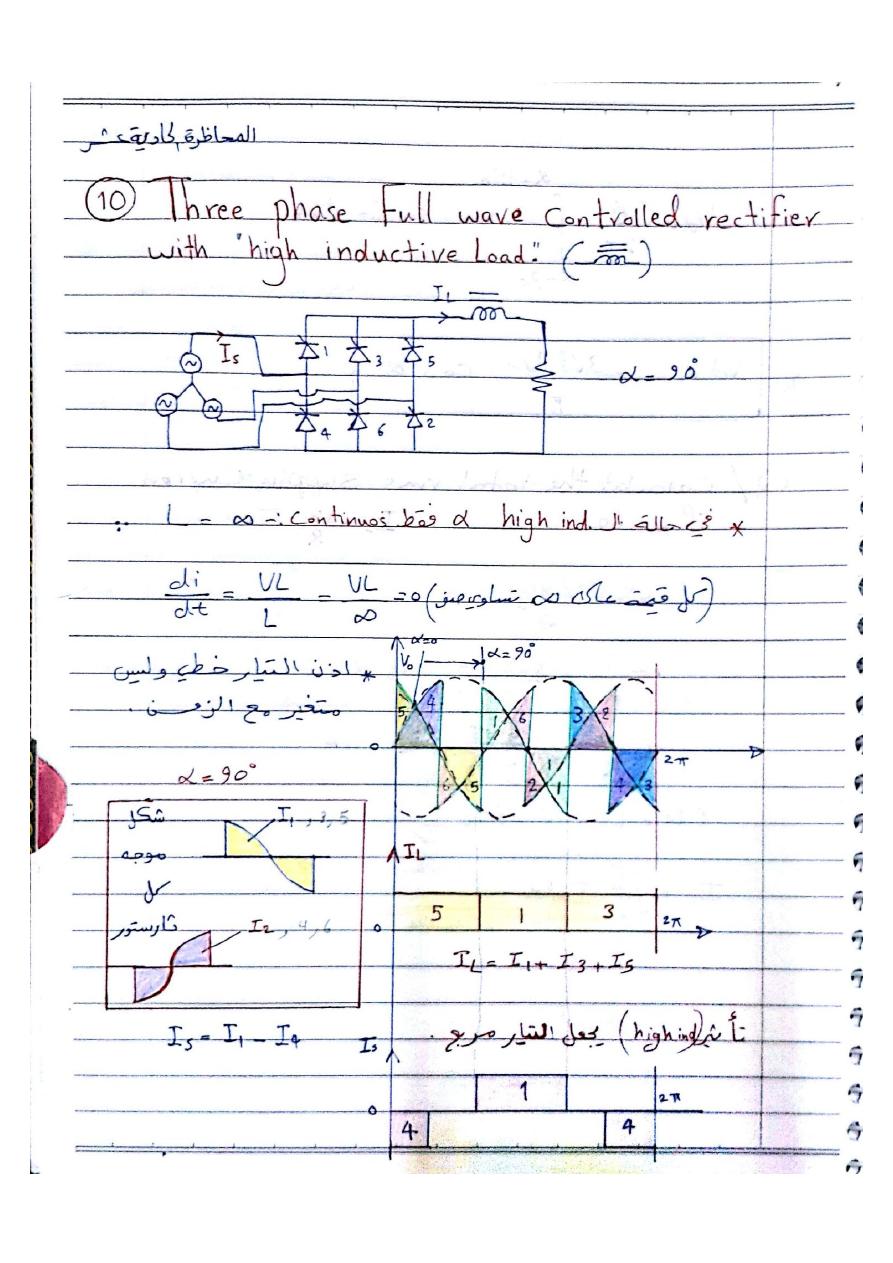 المحاظرة الحادية عشر
10 Three phase Full wave controlled rectifier
with "high inductive Load".
IL
Is
1
3
5
α = 90°
4
6
2
* في حالة الـ high ind. α فقط continuos :- L = ∞
di/dt = VL/L = VL/∞ = 0 (كل قيمة على ∞ تساوي صفر)
* اذن التيار خطي وليس
متغير مع الزمن.
α=0
Vo
α = 90°
5 4 1 6 3 2
0
2π
6 5 2 1 1 4 3
α = 90°
شكل
موجه
كل
ثارستور
I1, 3, 5
I2, 4, 6
IL
5 1 3
0
2π
IL = I1 + I3 + I5
Is = I1 - I4
تأثير (high ind) يجعل التيار مربع.
Is
1
0
2π
4
4